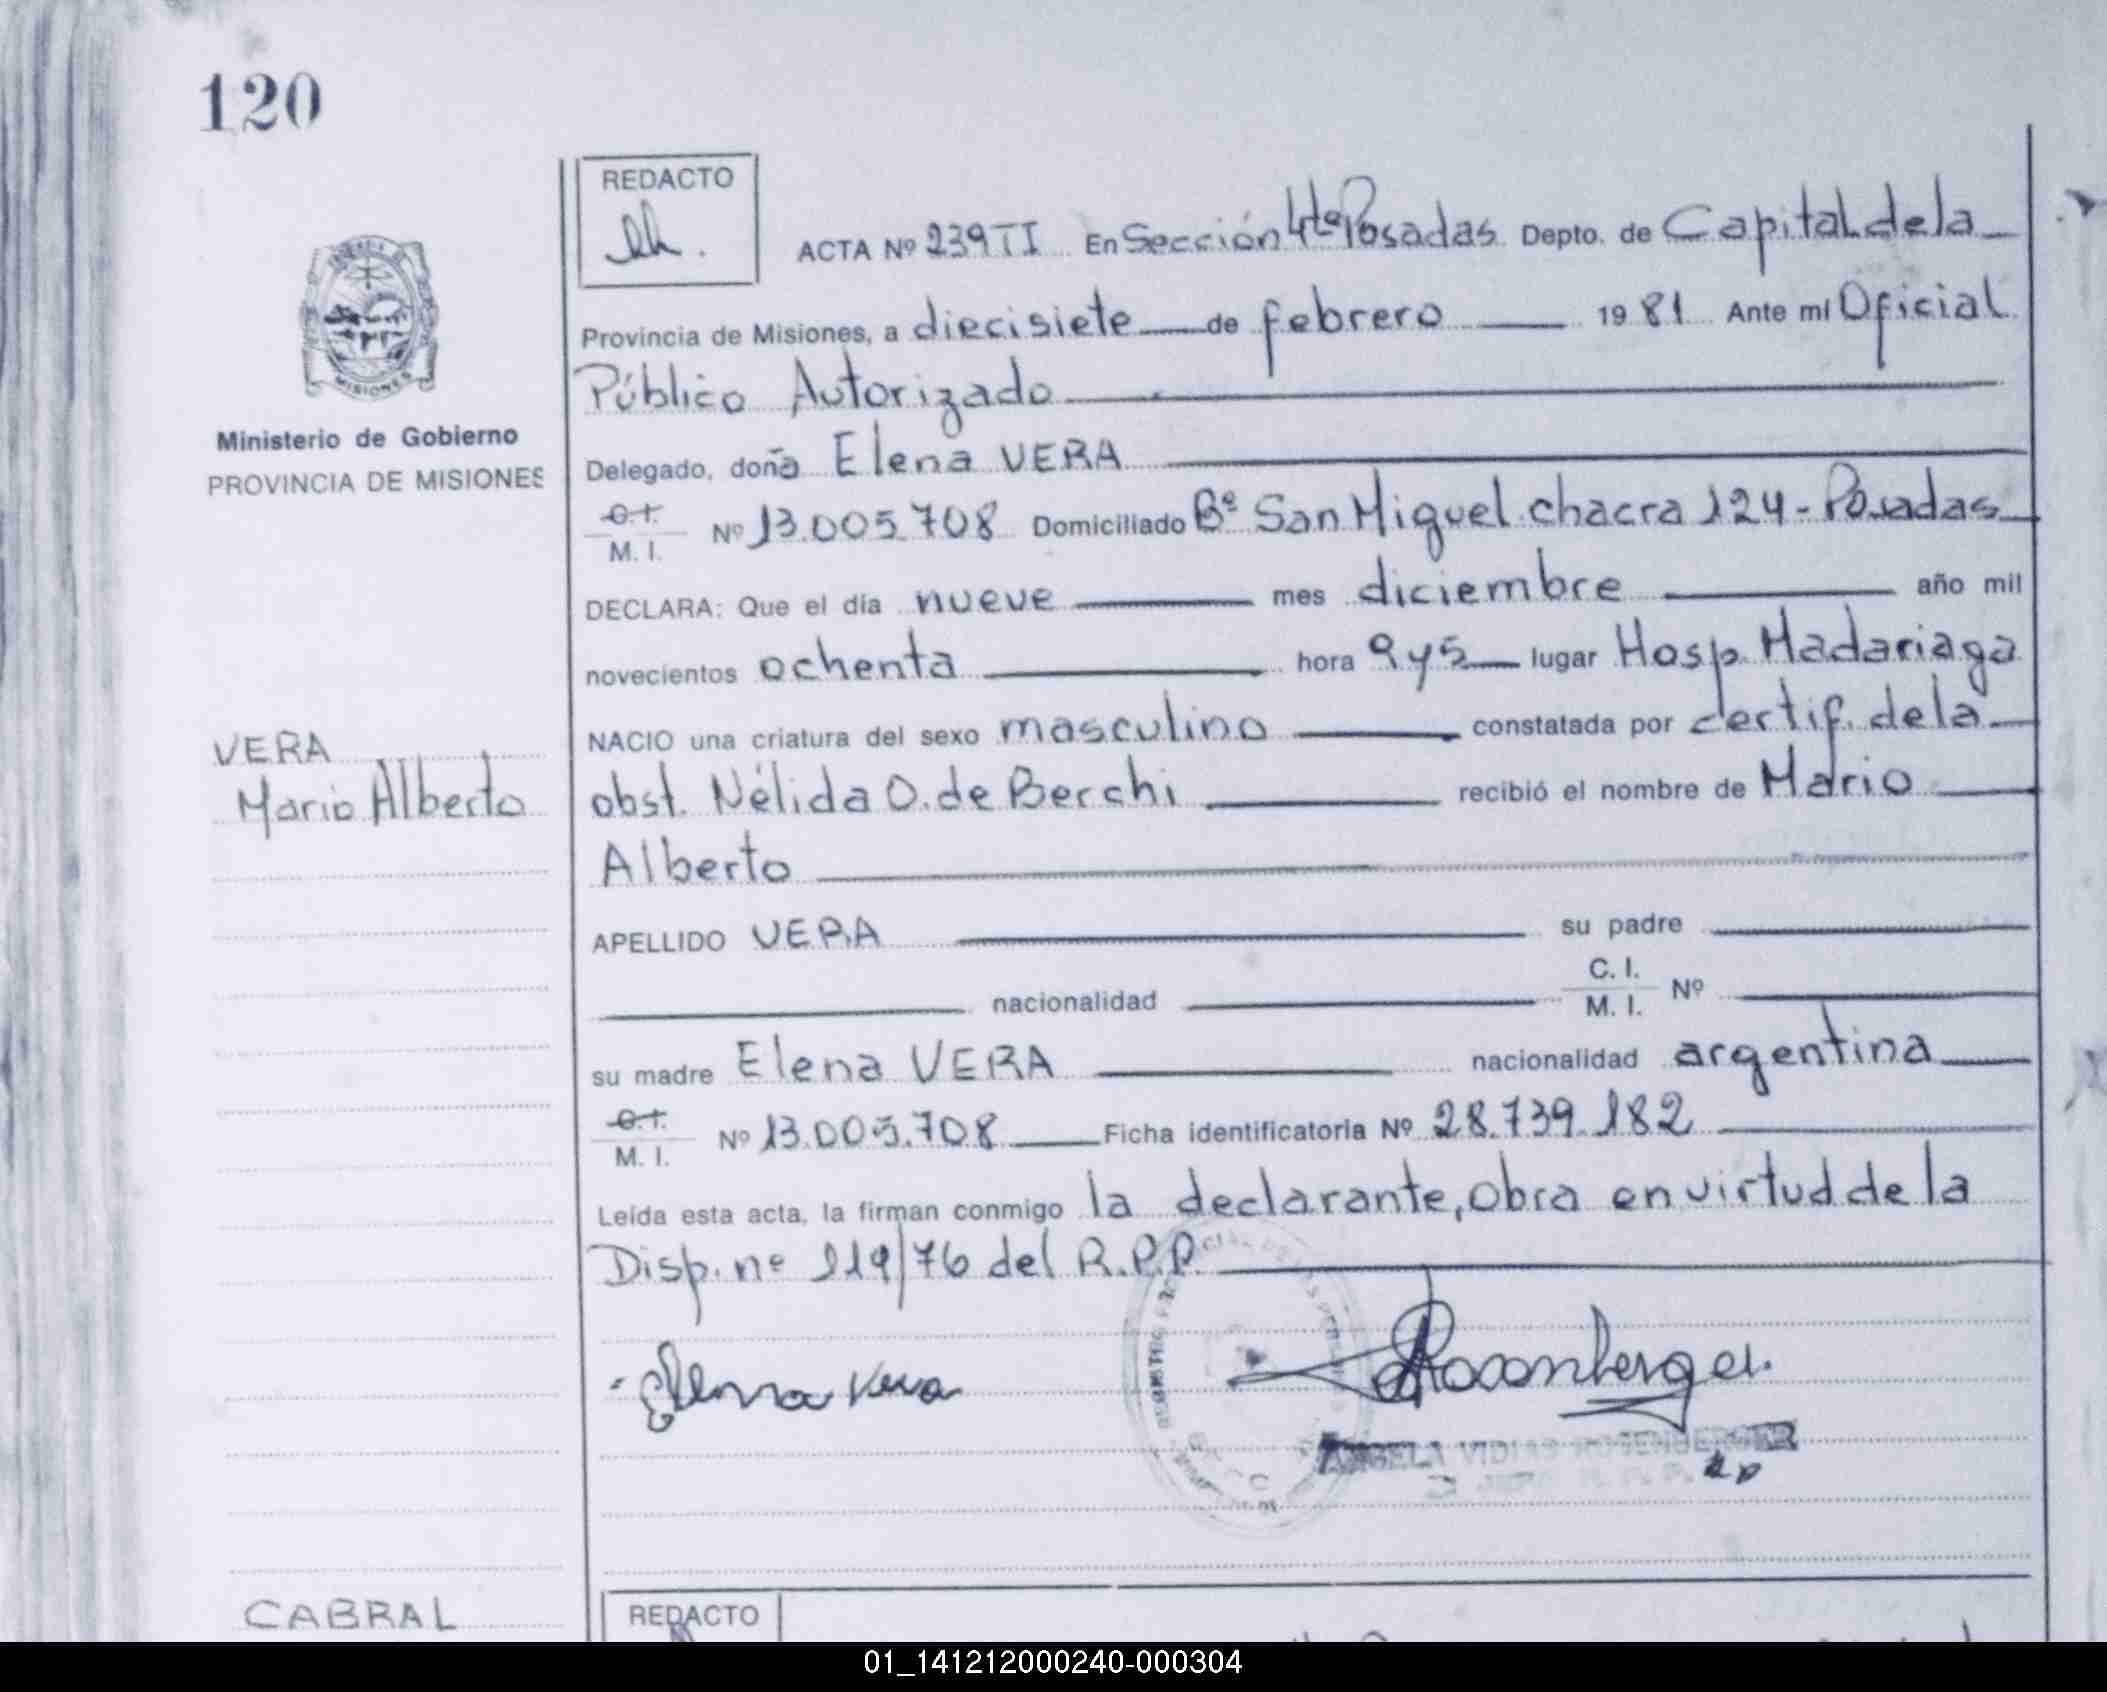 120
REDACTO
ACTA Nº 239 TI En Sección 4ta Posadas Depto. de Capital de la
Provincia de Misiones, a diecisiete de febrero 1981 Ante mí Oficial
Público Autorizado
MISIONES
Ministerio de Gobierno
PROVINCIA DE MISIONES
Delegado, doña Elena VERA
C.I.
M. I. Nº 13.005.708 Domiciliado Bº San Miguel chacra 124 - Posadas
DECLARA: Que el día nueve mes diciembre año mil
novecientos ochenta hora 9 y 5 lugar Hosp. Madariaga
NACIO una criatura del sexo masculino constatada por certif. de la
VERA
Mario Alberto
obst. Nélida O. de Berchi recibió el nombre de Mario
Alberto
APELLIDO VERA su padre
nacionalidad C. I.
M. I. Nº
su madre Elena VERA nacionalidad argentina
C.I.
M. I. Nº 13.005.708 Ficha identificatoria Nº 28.739.182
Leída esta acta, la firman conmigo la declarante, Obra en virtud de la
Disp. nº 119/76 del R.P.P.
Elena Vera
Rosenberger
ANGELA VIDIAS ROSENBERGER
CABRAL
REDACTO
01_141212000240-000304